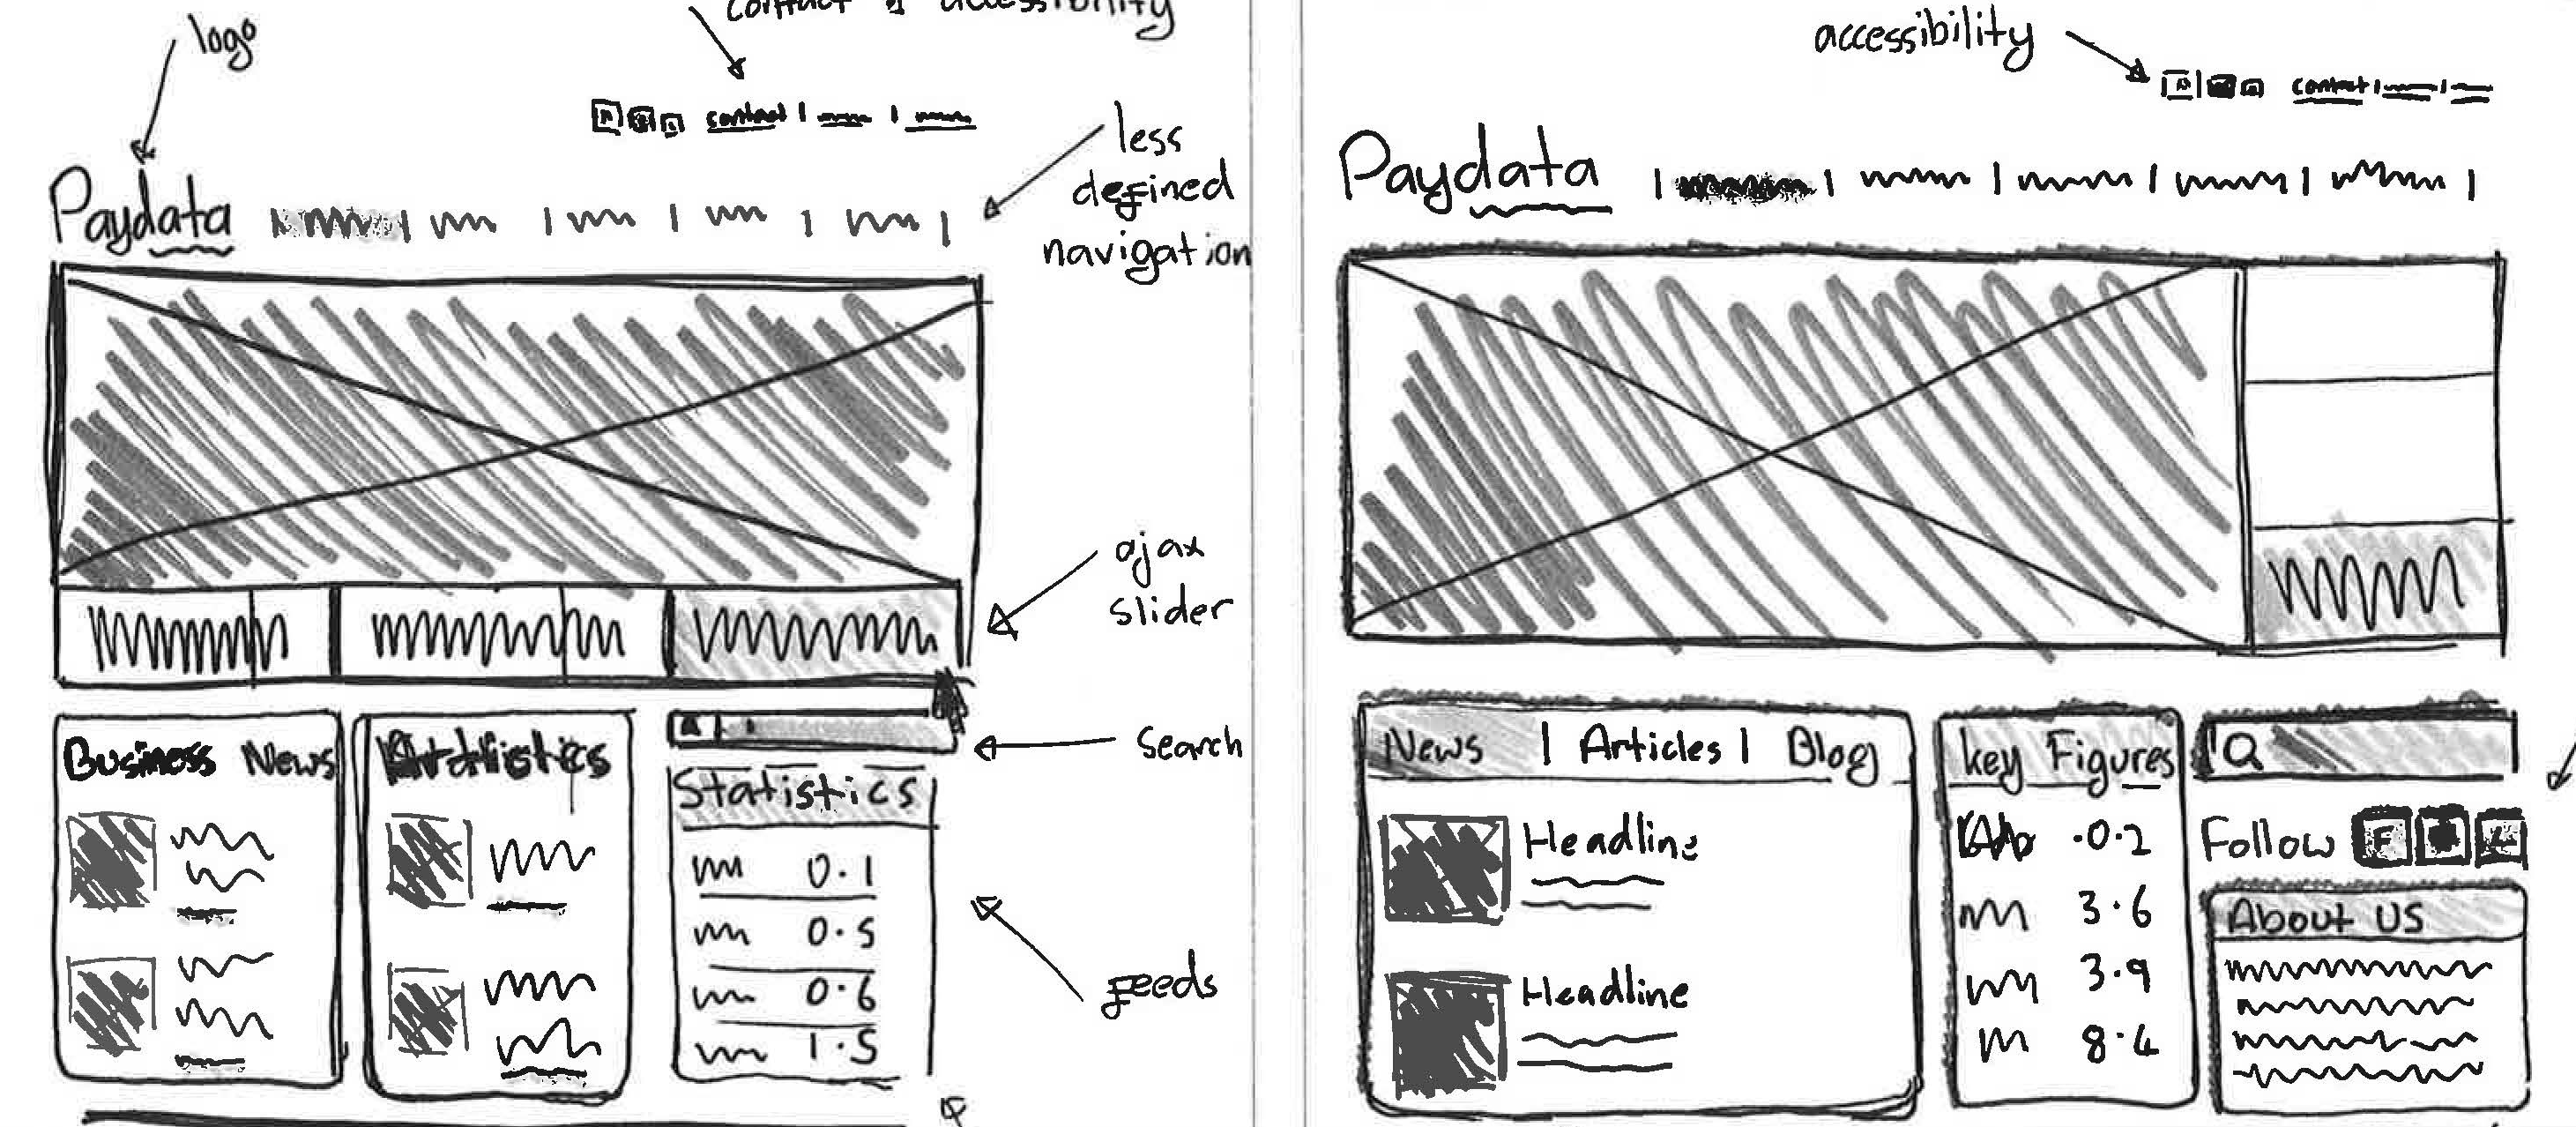 contact & accessibility
logo
contact
less
defined
navigation
Paydata
ajax
slider
Search
Business News
Statistics
0.1
0.5
0.6
1.5
feeds
accessibility
contact
Paydata
News | Articles | Blog
Headline
Headline
Key Figures
0.2
3.6
3.9
8.4
Follow
F
About US